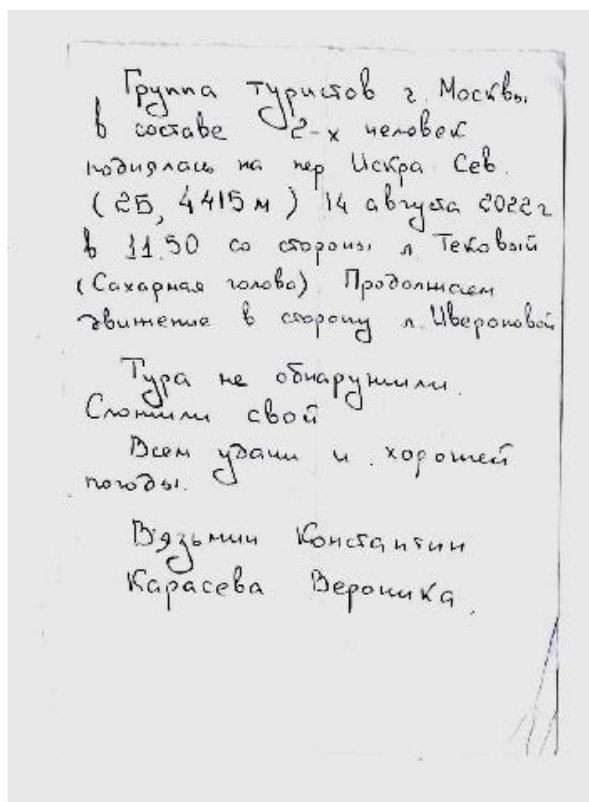 Группа туристов г. Москвы
в составе 2-х человек
поднялась на пер Искра Сев.
(2Б, 4415 м) 14 августа 2022 г
в 11.50 со стороны л. Тековый
(Сахарная голова). Продолжаем
движение в сторону л. Швероковой
Тура не обнаружили.
Сложили свой
Всем удачи и хорошей
погоды.
Вязьмин Константин
Карасева Вероника.